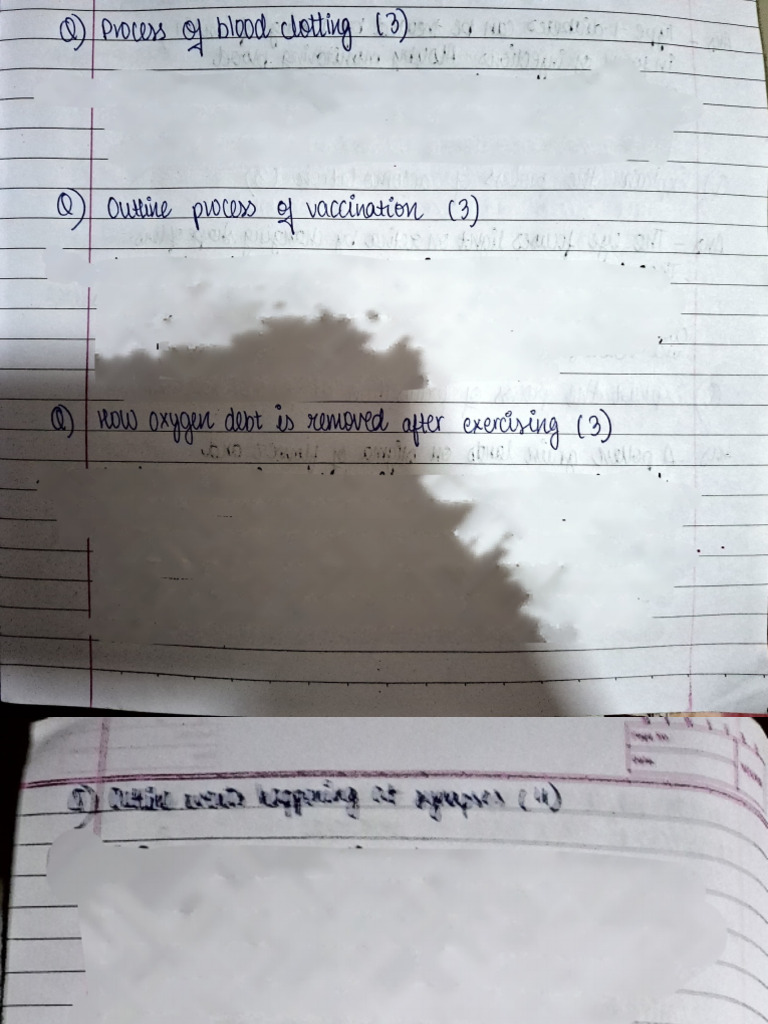 Q) Process of blood clotting (3)
Q) Outline process of vaccination (3)
Q) How oxygen debt is removed after exercising (3)
Q) Outline events happening at synapses (4)